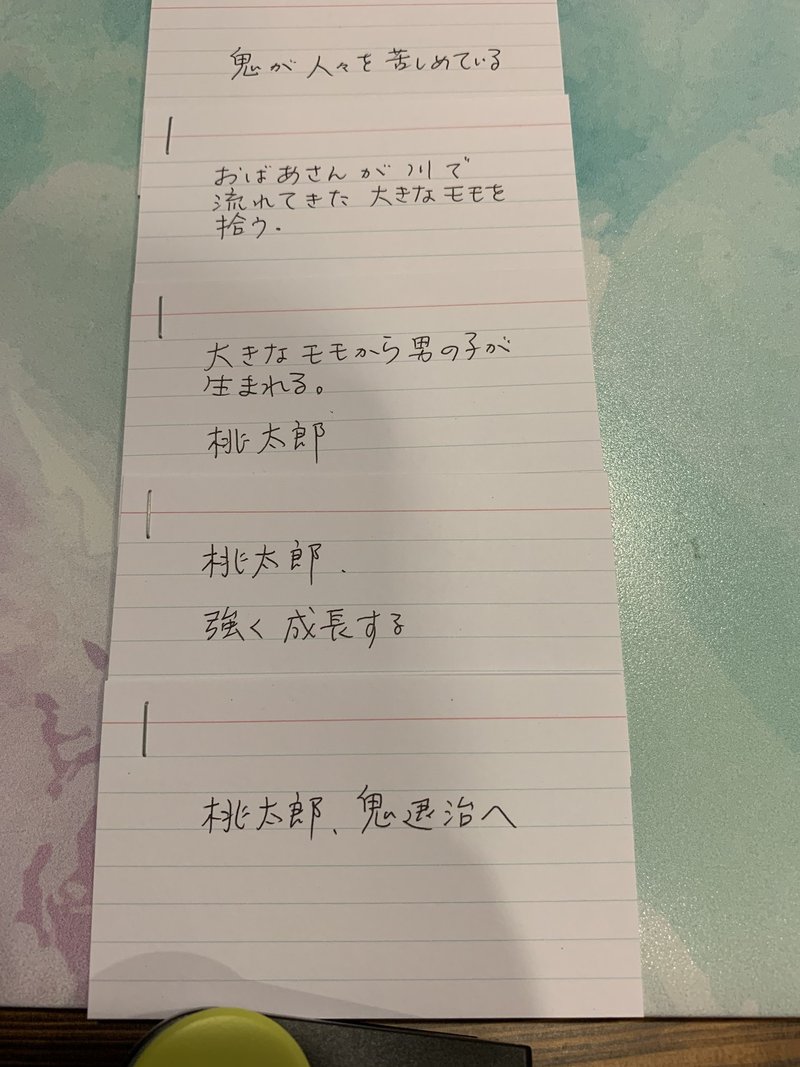 鬼が人々を苦しめている
おばあさんが川で
流れてきた 大きなモモを
拾う.
大きなモモから男の子が
生まれる。
桃太郎
桃太郎.
強く成長する
桃太郎、鬼退治へ